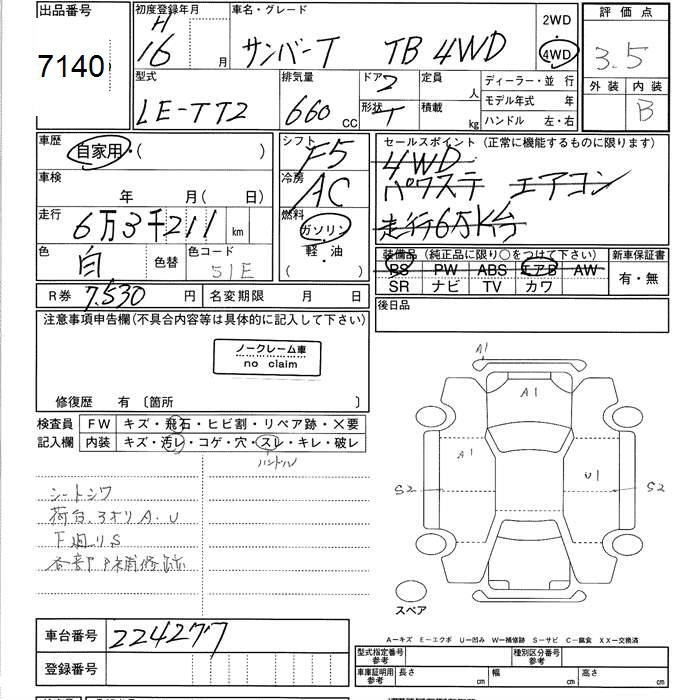 出品番号 初度登録年月 車名・グレード 2WD 評価点
7140 H 16 月 サンバーT TB 4WD 4WD 3.5
外装 内装
型式 排気量 ドア 定員 ディーラー・並行 B
LE-TT2 660 CC 2 人 モデル年式 年
形状 T 積載 kg ハンドル 左・右
車歴 自家用・( ) シフト F5 セールスポイント (正常に機能するものに限ります)
4WD
車検 年 月( 日) 冷房 AC パワステ エアコン
走行 6万3千211 km 燃料 ガソリン 走行6万K台
軽・油
( )
色 白 色替 色コード 51E 装備品 (純正品に限り○をつけて下さい) 新車保証書
PS PW ABS エアB AW 有・無
SR ナビ TV カワ
R券 7,530 円 名変期限 月 日 後日品
注意事項申告欄(不具合内容等は具体的に記入して下さい)
ノークレーム車
no claim
修復歴 有 〔箇所 〕
検査員 FW キズ・飛石・ヒビ割・リペア跡・×要
記入欄 内装 キズ・汚レ・コゲ・穴・スレ・キレ・破レ
ハンドル
シートシワ
荷台、3オリA.U
下廻りS
各部P補修跡
A1
A1
A1
U1
S2
S2
スペア
車台番号 224277
登録番号
A−キズ E−エクボ U−凹み W−補修跡 S−サビ C−腐食 XX−交換済
型式指定番号 参考 種別区分番号 参考
車庫証明用 参考 長さ cm 幅 cm 高さ cm